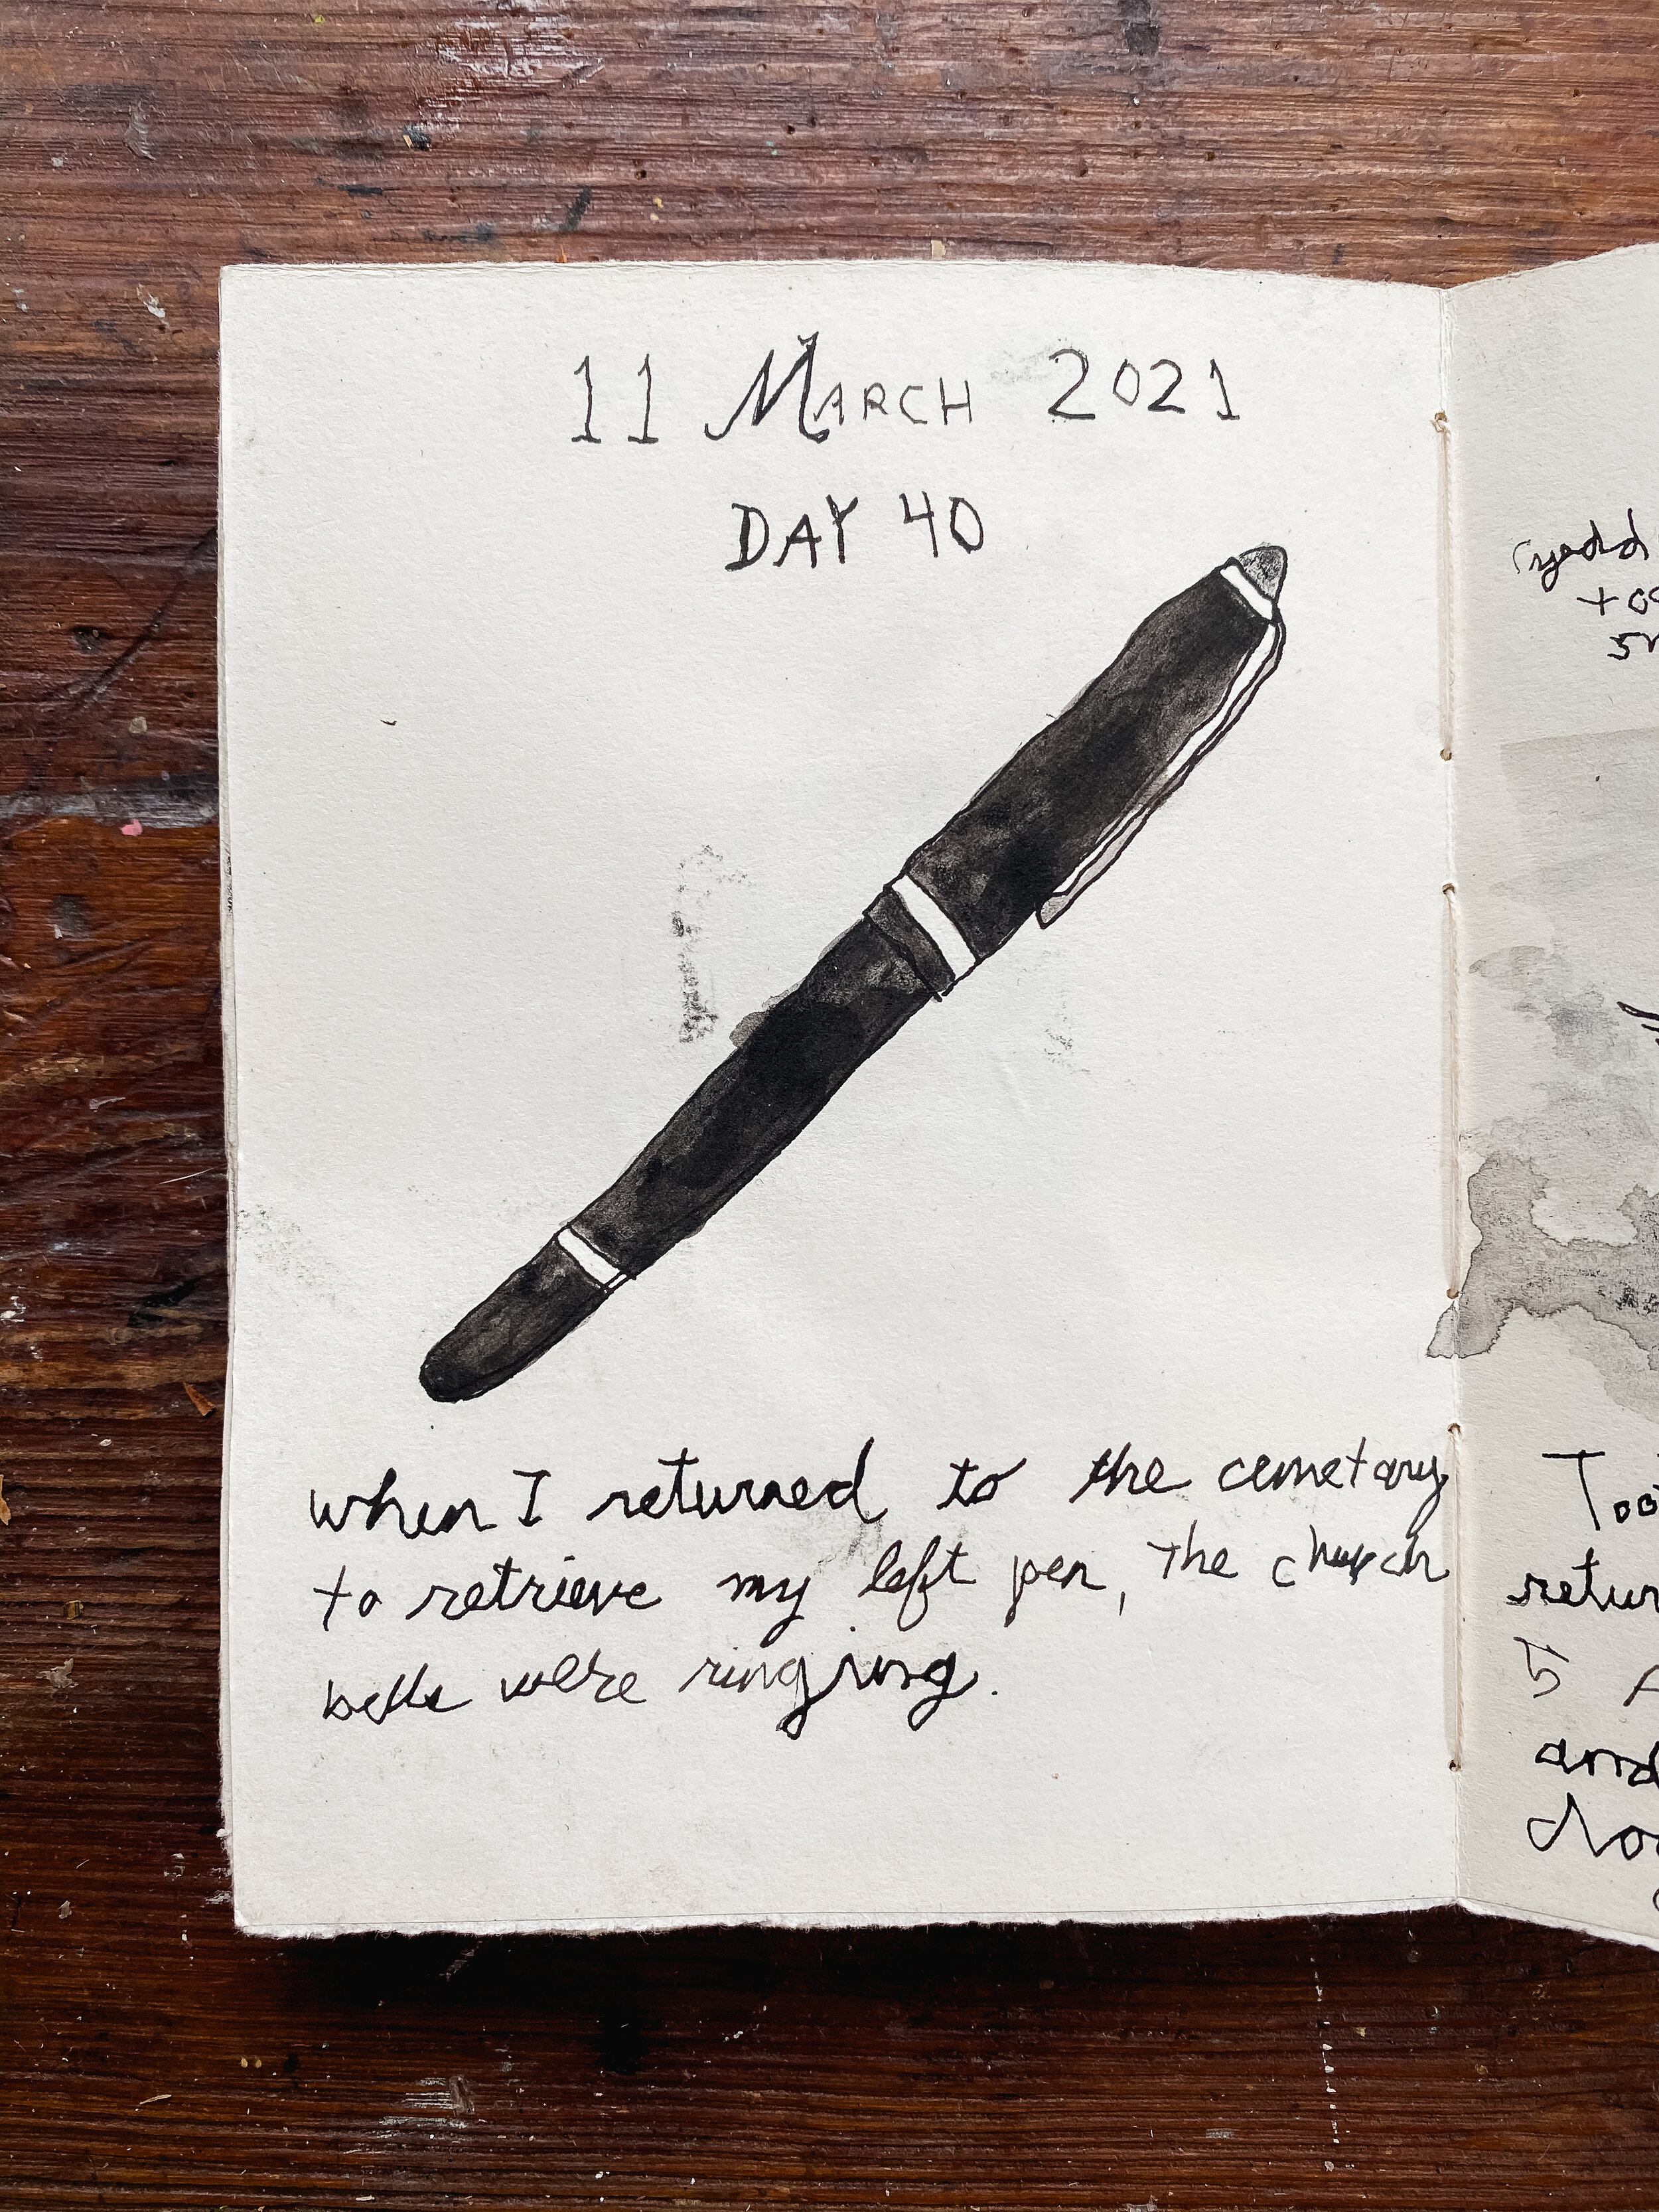 11 MARCH 2021
DAY 40
when I returned to the cemetary
to retrieve my left pen, the church
bells were ringing.
Too
retur
5 A
and